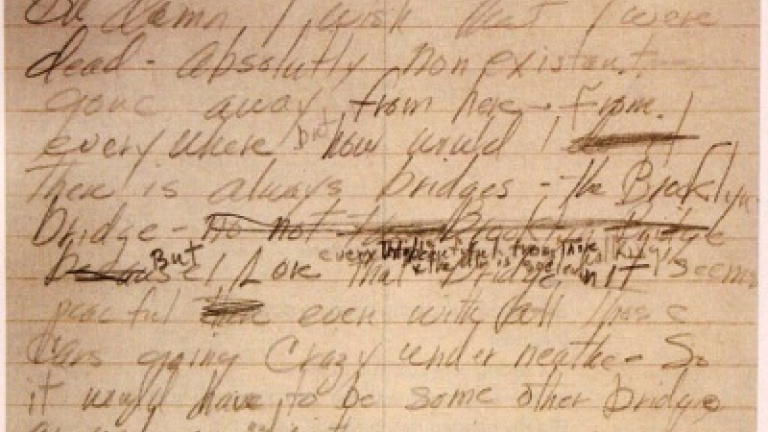 Oh damn I wish that I were
dead - absolutly non existant
gone away from here - from
everywhere but how would I
There is always bridges - the Brooklyn
bridge - no not the Brooklyn Bridge
everything is beautiful from there
because But I Love that bridge in it seems
peaceful there even with all those
cars going crazy under neathe - So
it would have to be some other bridge